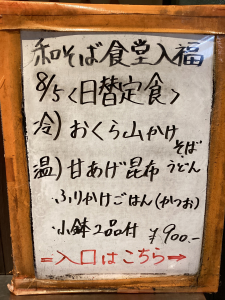 和そば食堂入福
8/5<日替定食>
冷)おくら山かけ
そば
温)甘あげ昆布うどん
・ふりかけごはん(かつお)
・小鉢2品付 ¥900.-
=入口はこちら⇒